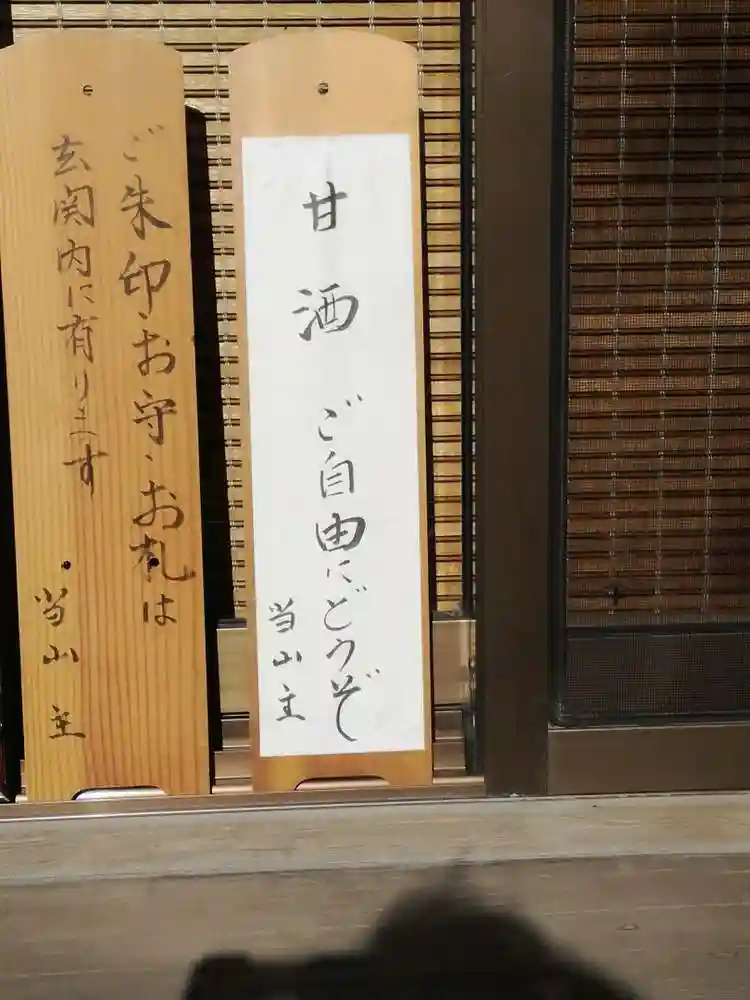 甘酒 ご自由にどうぞ
当山主
ご朱印、お守、お札は
玄関内に有ります
当山主